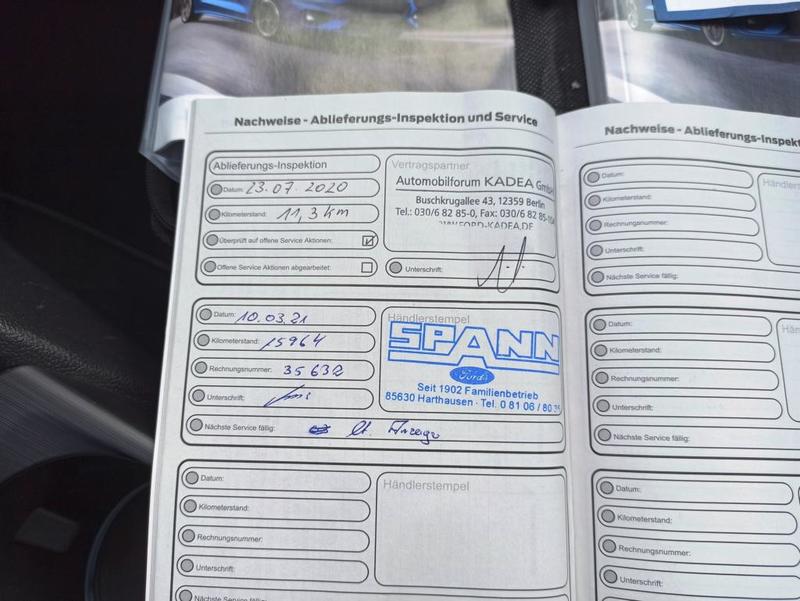 Nachweise - Ablieferungs-Inspektion und Service
Ablieferungs-Inspektion
Datum: 23.07.2020
Kilometerstand: 11,3 km
Überprüft auf offene Service Aktionen:
Offene Service Aktionen abgearbeitet:
Vertragspartner
Automobilforum KADEA GmbH
Buschkrugallee 43, 12359 Berlin
Tel.: 030/6 82 85-0, Fax: 030/6 82 85-
WWW.FORD-KADEA.DE
Unterschrift:
Datum: 10.03.21
Kilometerstand: 15964
Rechnungsnummer: 35632
Unterschrift:
Nächste Service fällig: lt. Anzeige
Händlerstempel
SPANN
Ford
Seit 1902 Familienbetrieb
85630 Harthausen · Tel. 0 81 06 / 80
Datum:
Kilometerstand:
Rechnungsnummer:
Unterschrift:
Nächste Service fällig:
Händlerstempel
Nachweise - Ablieferungs-Inspekt
Datum:
Kilometerstand:
Rechnungsnummer:
Unterschrift:
Nächste Service fällig:
Händlers
Datum:
Kilometerstand:
Rechnungsnummer:
Unterschrift:
Nächste Service fällig:
Hän
Datum:
Kilometerstand:
Rechnungsnummer:
Unterschrift: